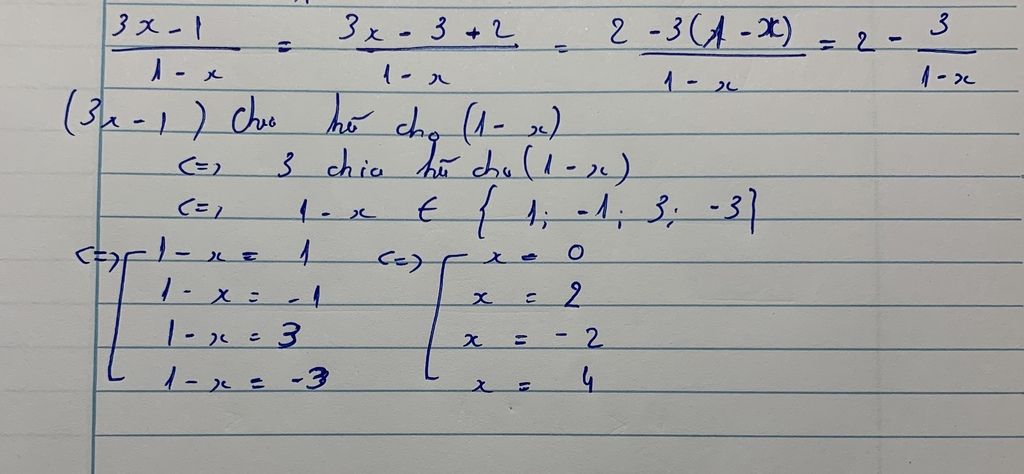 3x - 1 / 1 - x = 3x - 3 + 2 / 1 - x = 2 - 3(1 - x) / 1 - x = 2 - 3 / 1 - x
(3x - 1) chia hết cho (1 - x)
<=> 3 chia hết cho (1 - x)
<=> 1 - x ∈ { 1; -1; 3; -3}
<=> [ 1 - x = 1 <=> [ x = 0
1 - x = -1 x = 2
1 - x = 3 x = -2
1 - x = -3 x = 4